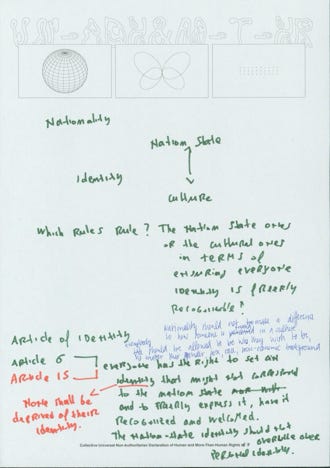 Nationality
Nation State
Identity
culture
Which Rules Rule? The Nation State ones
or the cultural ones
in terms of
ensuring everyone
identity is freely
Recognized?
Nationality should not make a difference
to how someone is
everybody should be allowed to be who they wish to be,
no matter their gender, sex, race, socio-economic background
Article of Identity
Article 6
everyone has the Right to set an
Article 15
identity that might not correspond
to the nation state
None shall be
deprived of their
identity.
and to freely express it, have it
Recognized and welcomed.
The Nation-state identity should not
overrule over
personal identity.
Collective Universal Non-Authoritarian Declaration of Human and More-Than-Human Rights